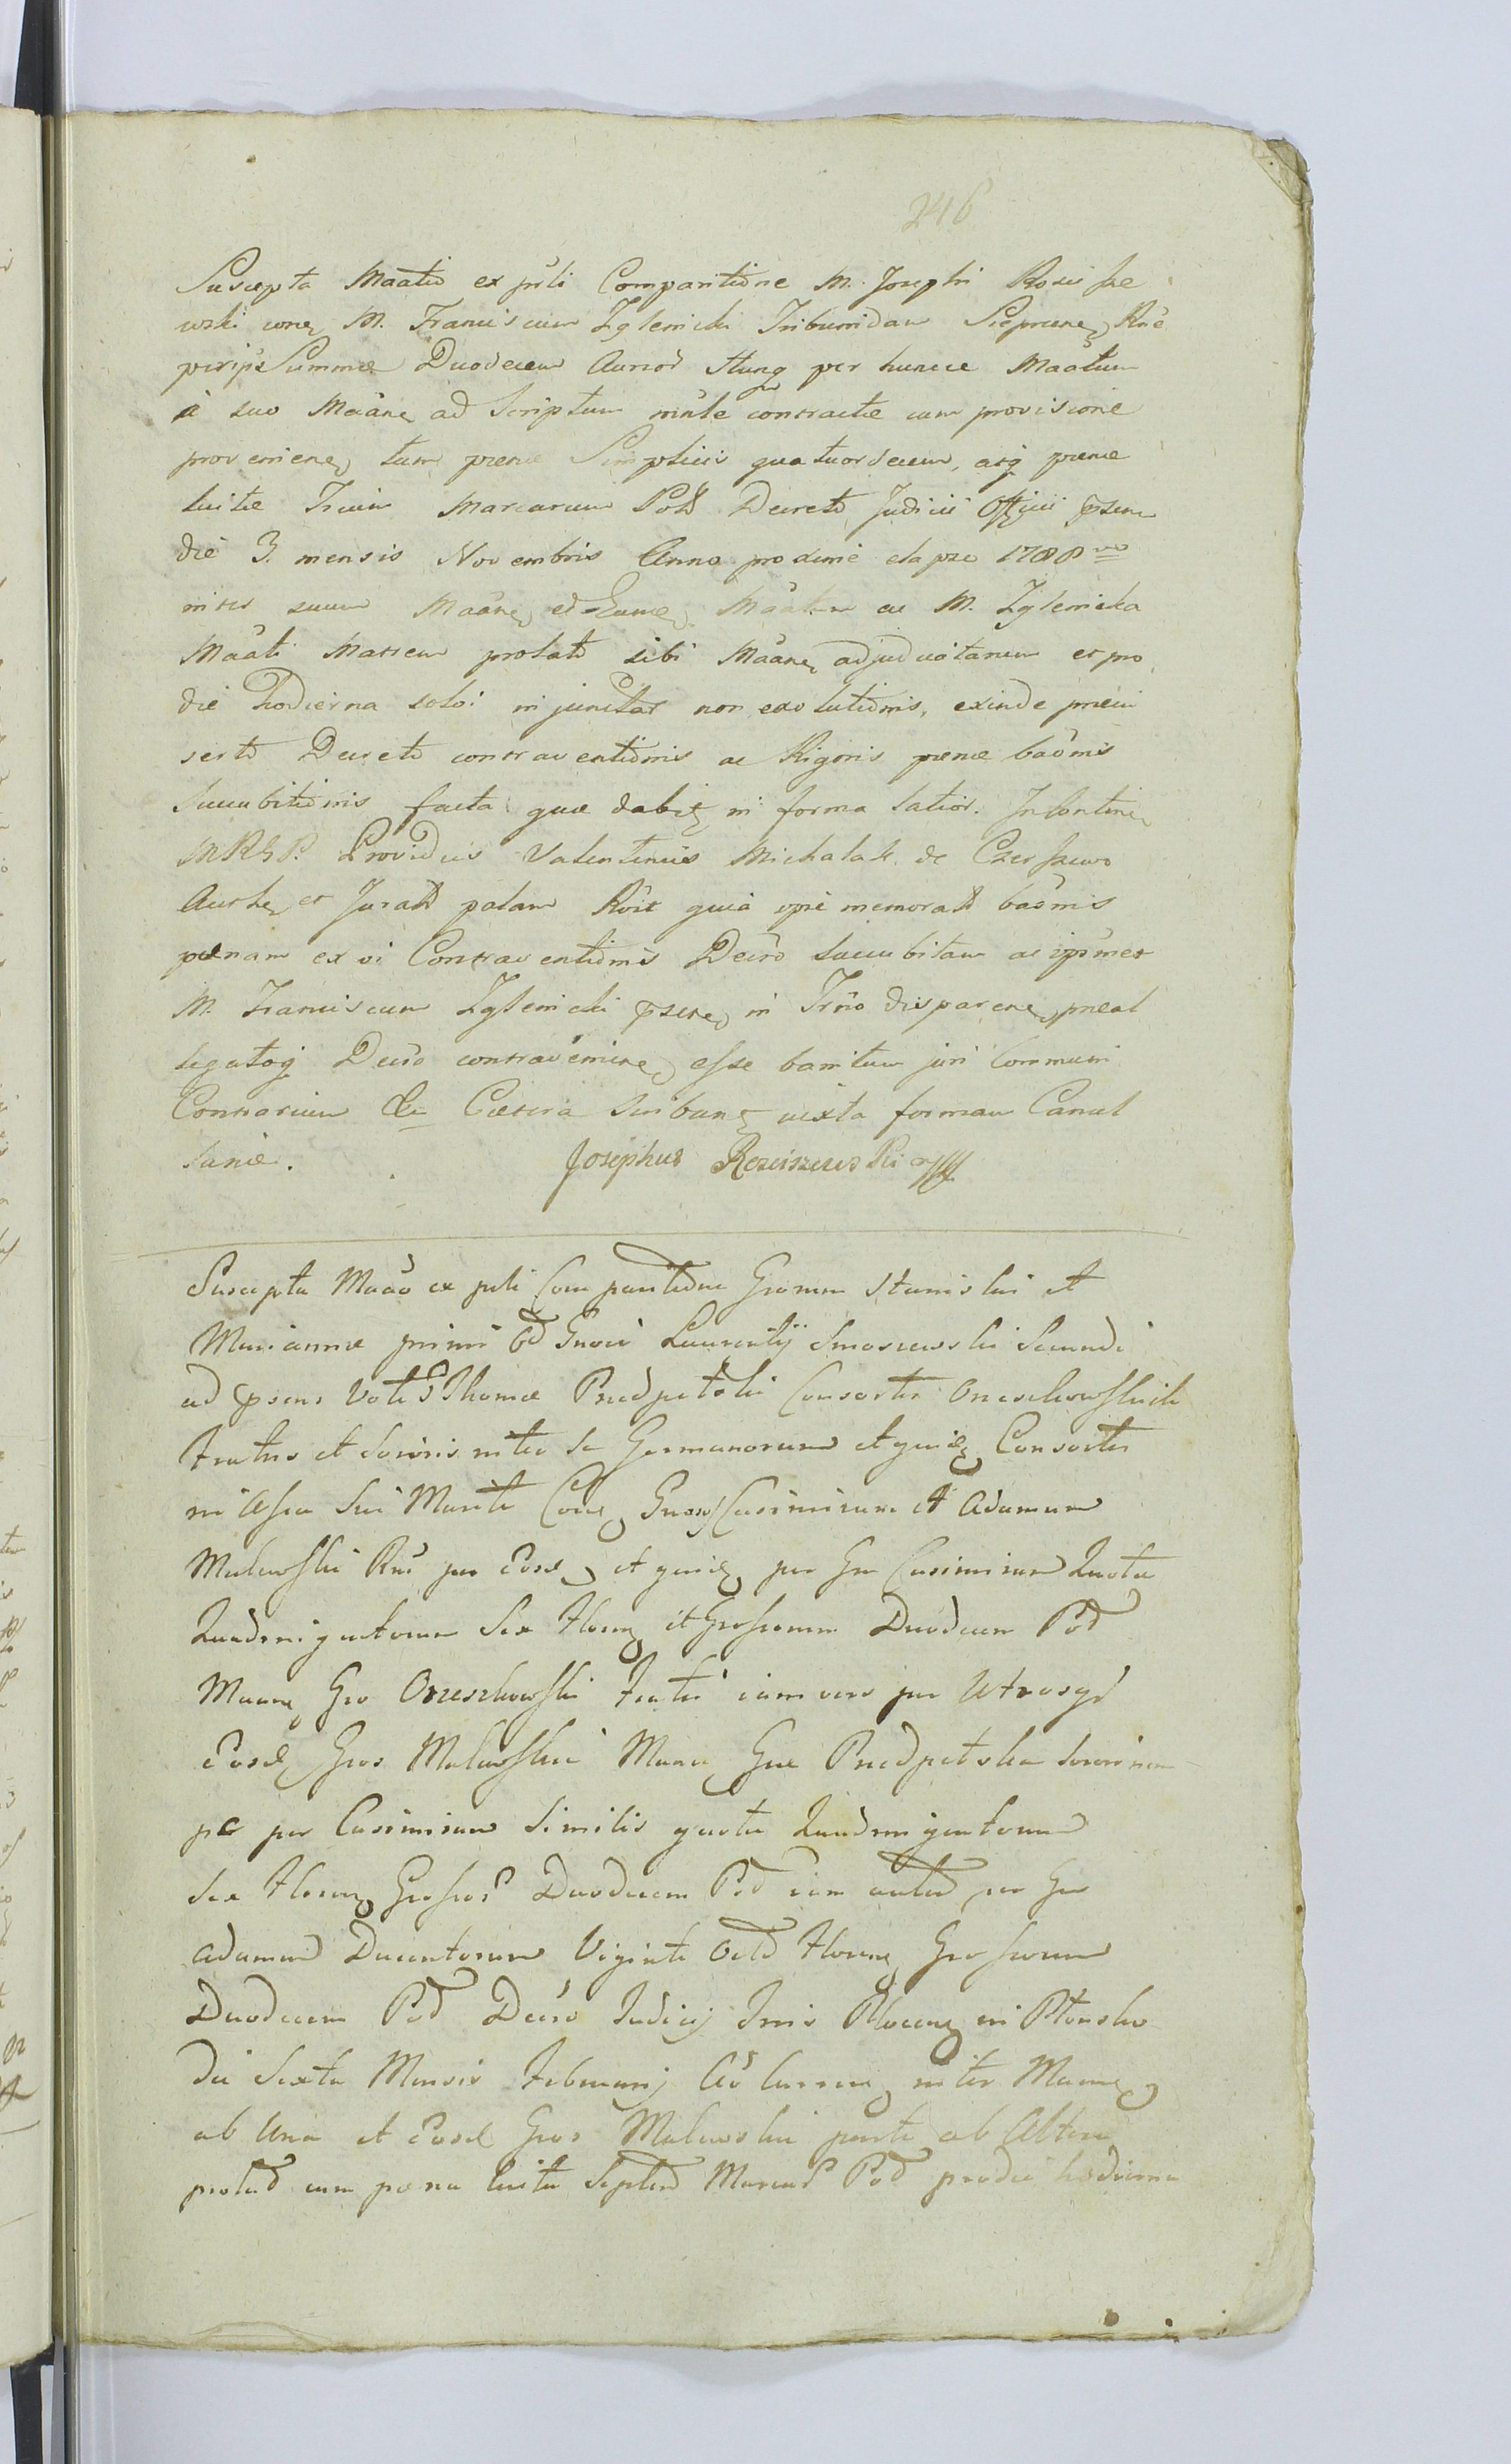 246
Suscepta Maãtio ex prli Comparitione M. Josephi Rosisze
wski cone M. Franciscum Zglenicki Tribunidam Sieprcen Rne
percip Summæ Duodecem Aureor Hung per hunce Maãtum
à suo Maãne ad Scriptum mãle contractæ cum provisione
provenien tum pænæ Simplicis quatuordecem, atq pænæ
luitæ Trium Marcarum Pol Decreto Judicii Officii psen
die 3. mensis Novembris Anno proxime elapso 1788vo
inter suum Maãne et Eume Maãtum ac M. Zglenicka
Maãti Matrem prolato sibi Maãne adjudicatarum et pro
die hodierna solõi injunctar non exolutionis, exinde prein
serto Decreto contraventionis ac Rigoris pænæ baõnis
succubitionis facta quæ dabit in forma latior. Incontinen
MRGP. Providus Valentinus Michalak de Czerszewo
Authen et Jurat palam Rõit quia opie memorat baõnis
pænam ex vi Contraventionis Decro succubitam ac ipsmet
M. Franciscum Zglenicki psen in Trno disparen, præal
legatoq Decro contravenien esse banitum juri Communi
Contrarium & Cætera scribant iuxta formam Cancel
lariæ.
Josephus Rosciszewski mp
Suscepta Maão ex prli Comparitione Grorum Stanislai et
Mariannæ primi Gd Laurentij Smoszewski Secundi
ad psens Voti Thomæ Przedpelski Consortis Orzeszkowskich
Fratris et Sororis inter se Germanorum et quid Consortis
in Assa sui Mariti Cone Gnos Casimirum et Adamum
Malewski Rne per Eosd et quid per Gn Casimirum Quota
Quadringentorum Sex Floren et Grossorum Duodecem Pol
Maane Gro Orzeszkowski Fratri iam vero per Utrosq
Eosd Gros Malewskie Maane Græ Przedpelska Sorori nem
pe per Casimirum Similis quota Quadringentorum
Sex Floren Grossor Duodecem Pol iam autem per Gn
Adamum Ducentorum Viginti Octo Floren Grossorum
Duodecem Pol Decro Judicij Trris Plocen in Plonsko
die Sexta Mensis Februarij Ao curren inter Maane
ab Una et Eosd Gros Malewski parte ab Altera
prolato cum pæna luita Septem Marcar Pol pro die hodierna